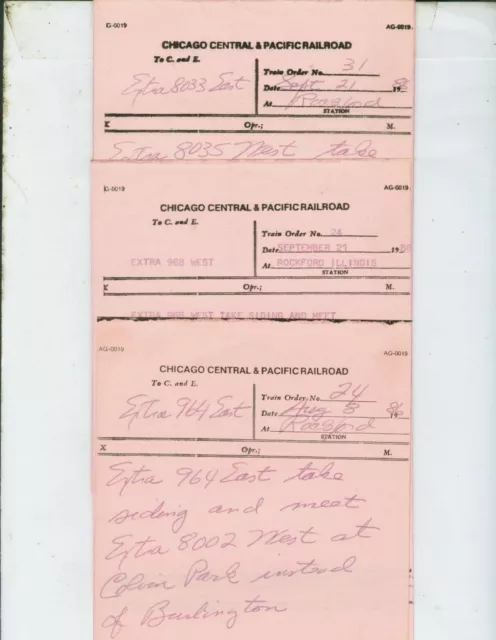 G-0019 AG-0019
CHICAGO CENTRAL & PACIFIC RAILROAD
To C. and E.
Train Order No. 31
Extra 8033 East
Date Sept. 21 19 86
At Rockford
STATION
X Opr.; M.
Extra 8035 West take
G-0019 AG-0019
CHICAGO CENTRAL & PACIFIC RAILROAD
To C. and E.
Train Order No. 24
Date SEPTEMBER 21 19 86
EXTRA 968 WEST
At ROCKFORD ILLINOIS
STATION
X Opr.; M.
EXTRA 968 WEST TAKE SIDING AND MEET
AG-0019 AG-0019
CHICAGO CENTRAL & PACIFIC RAILROAD
To C. and E.
Train Order No. 24
Extra 964 East
Date Aug 8 19 86
At Rockford
STATION
X Opr.; M.
Extra 964 East take
siding and meet
Extra 8002 West at
Colvin Park instead
of Burlington